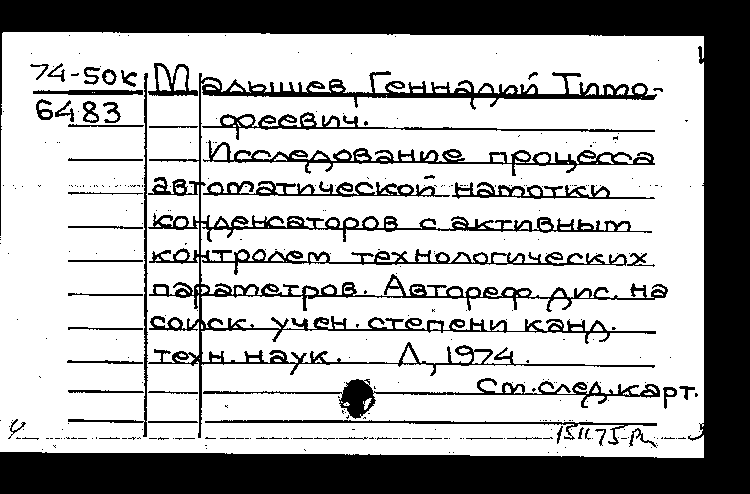 74-50к Малышев, Геннадий Тимо-
6483 феевич.
Исследование процесса
автоматической намотки
конденсаторов с активным
контролем технологических
параметров. Автореф. дис. на
соиск. учен. степени канд.
техн. наук. Л., 1974.
См. след. карт.